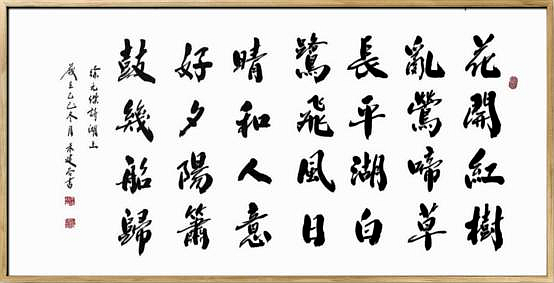 花開紅樹
亂鶯啼草
長平湖白
鷺飛風日
晴和人意
好夕陽簫
鼓幾船歸
徐元傑詩湖上
歲在乙巳冬月